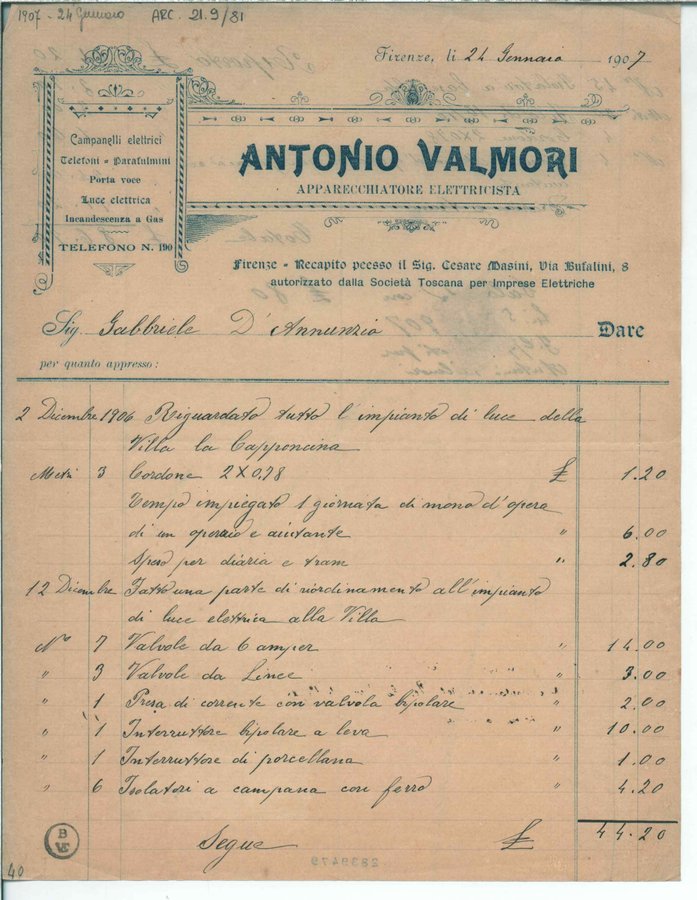 1907 - 24 Gennaio ARC. 21.9/81
Firenze, li 24 Gennaio 1907
Campanelli elettrici
Telefoni - Parafulmini
Porta voce
Luce elettrica
Incandescenza a Gas
TELEFONO N. 190
ANTONIO VALMORI
APPARECCHIATORE ELETTRICISTA
Firenze - Recapito pcesso il Sig. Cesare Masini, Via Bufalini, 8
autorizzato dalla Società Toscana per Imprese Elettriche
Sig. Gabbriele D'Annunzio Dare
per quanto appresso:
2 Dicembre 1906 Riguardato tutto l'impianto di luce della
Villa la Capponcina
Metri 3 Cordone 2X0,78 £ 1.20
Tempo impiegato 1 giornata di mano d'opera
di un operaio e aiutante " 6.00
Spese per diaria e tram " 2.80
12 Dicembre Fatto una parte di riordinamento all'impianto
di luce elettrica alla Villa
No 7 Valvole da 6 amper " 14.00
" 3 Valvole da Linee " 3.00
" 1 Presa di corrente con valvola bipolare " 2.00
" 1 Interruttore bipolare a leva " 10.00
" 1 Interruttore di porcellana " 1.00
" 6 Isolatori a campana con ferro " 4.20
Segue £ 44.20
2839479
40